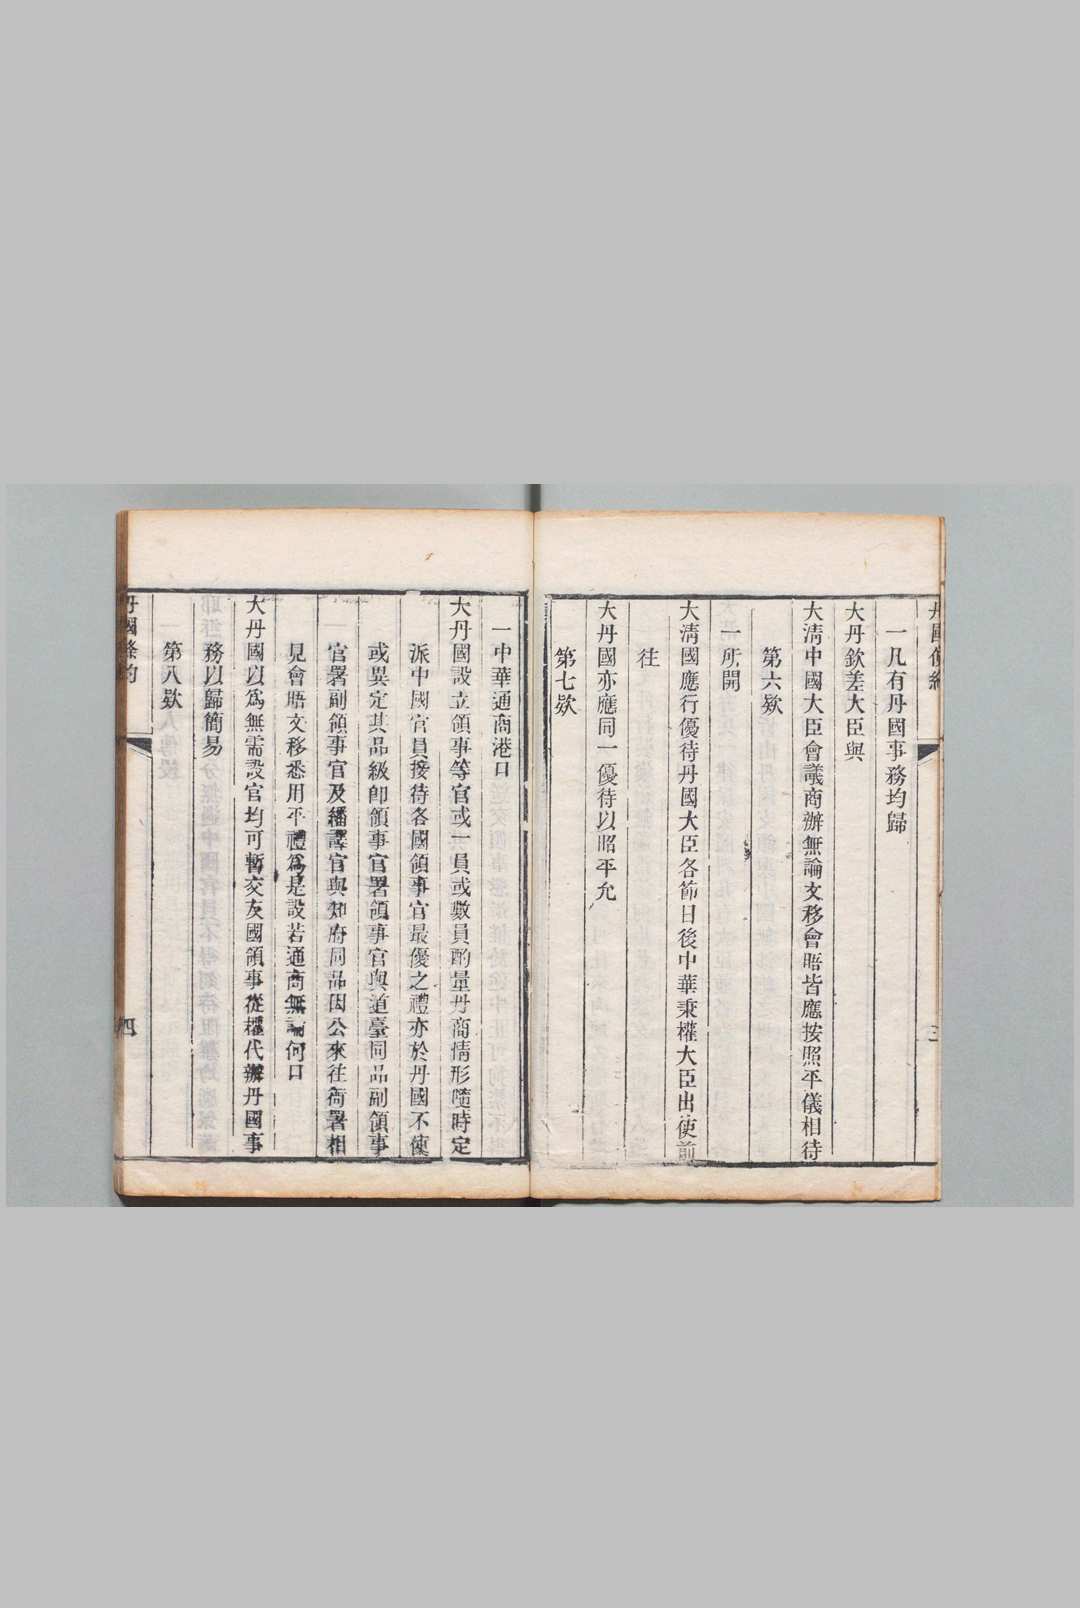 一凡有丹國事務均歸
大丹欽差大臣與
大清中國大臣會議商辦無論文移會晤皆應按照平儀相待
第六欵
一所開
大清國應行優待丹國大臣各節日後中華秉權大臣出使前
往
大丹國亦應同一優待以昭平允
第七欵
一中華通商港口
大丹國設立領事等官或一員或數員酌量丹商情形隨時定
派中國官員接待各國領事官最優之禮亦於丹國不使
或異定其品級卽領事官署領事官與道臺同品副領事
官署副領事官及繙譯官與知府同品因公來往衙署相
見會晤文移悉用平禮爲是設若通商無論何口
大丹國以爲無需設官均可暫交友國領事從權代辦丹國事
務以歸簡易
第八欵
丹國條約
四